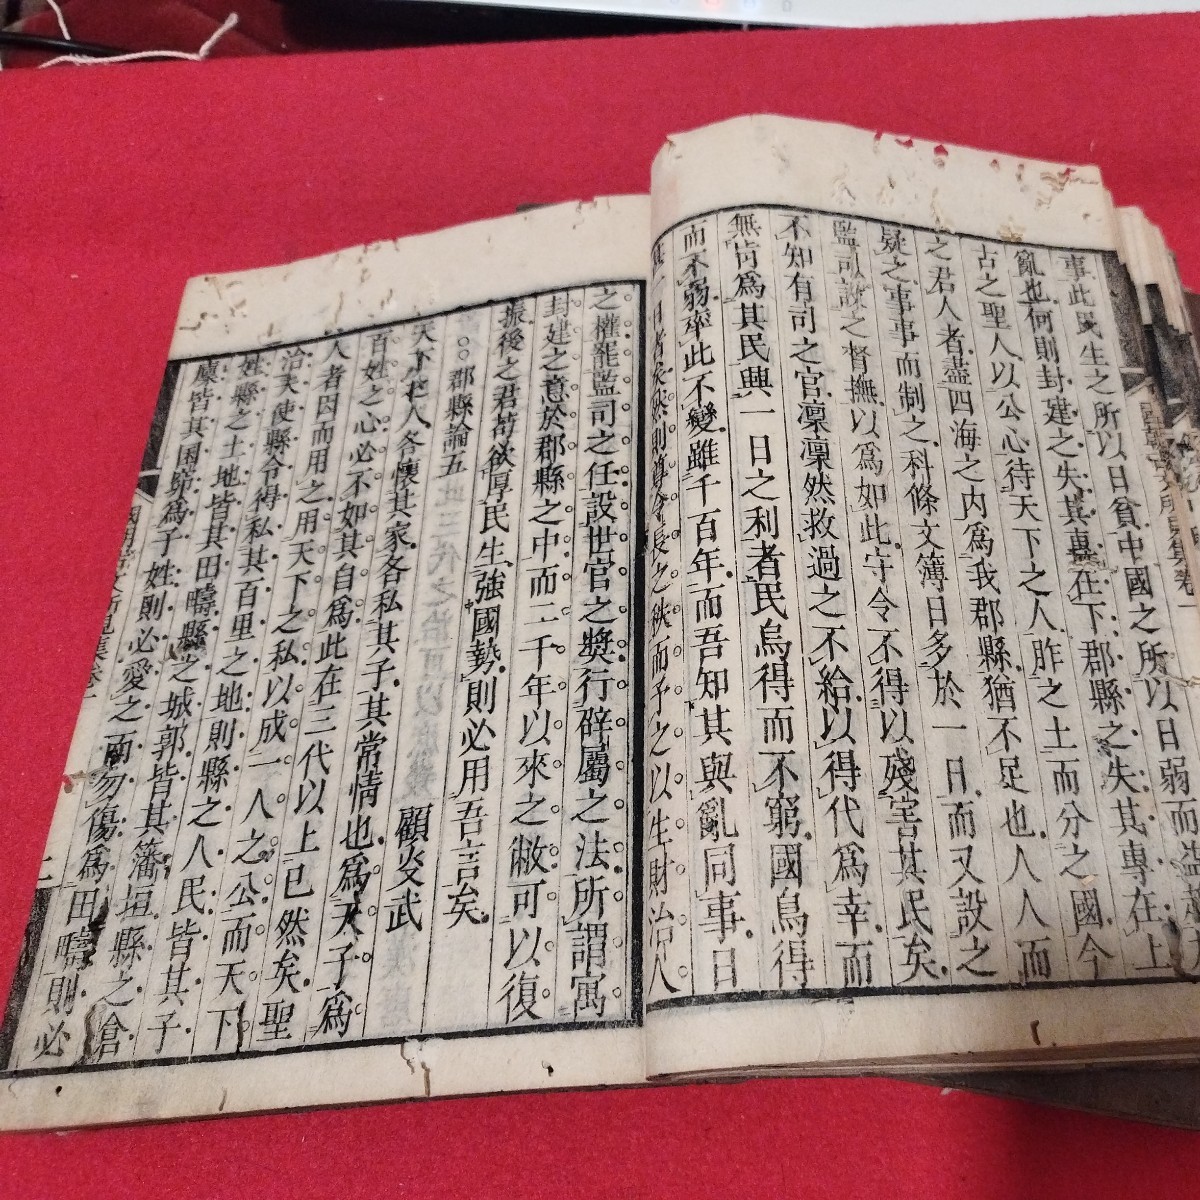 事此民生之所以日貧中國之所以日弱而益趨於
亂也何則封建之失其專在下郡縣之失其專在上
古之聖人以公心待天下之人胙之土而分之國今
之君人者盡四海之內爲我郡縣猶不足也人人而
疑之事事而制之科條文簿日多於一日而又設之
監司設之督撫以爲如此守令不得以殘害其民矣
不知有司之官凜凜然救過之不給以得代爲幸而
無肯爲其民興一日之利者民烏得而不窮國烏得
而不弱率此不變雖千百年而吾知其與亂同事日
甚一日者矣然則尊令長之秩而予之以生財治人
之權罷監司之任設世官之獎行辟屬之法所謂寓
封建之意於郡縣之中而二千年以來之敝可以復
振後之君苟欲厚民生強國勢則必用吾言矣
郡縣論五
顧炎武
天下之人各懷其家各私其子其常情也爲天子爲
百姓之心必不如其自爲此在三代以上已然矣聖
人者因而用之用天下之私以成一人之公而天下
治夫使縣令得私其百里之地則縣之人民皆其子
姓縣之土地皆其田疇縣之城郭皆其籓垣縣之倉
廩皆其囷窌爲子姓則必愛之而勿傷爲田疇則必
國朝古文所見集卷一